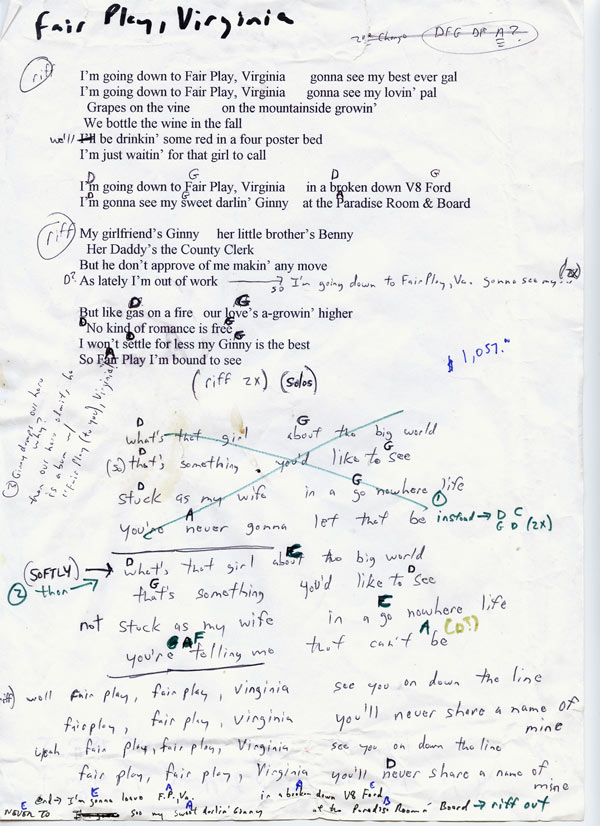 Fair Play, Virginia
DFG DF A?
riff
I'm going down to Fair Play, Virginia gonna see my best ever gal
I'm going down to Fair Play, Virginia gonna see my lovin' pal
Grapes on the vine on the mountainside growin'
We bottle the wine in the fall
we'll I'll be drinkin' some red in a four poster bed
I'm just waitin' for that girl to call
D G D G
I'm going down to Fair Play, Virginia in a broken down V8 Ford
D G A
I'm gonna see my sweet darlin' Ginny at the Paradise Room & Board
riff
My girlfriend's Ginny her little brother's Benny
Her Daddy's the County Clerk
But he don't approve of me makin' any move
D? As lately I'm out of work so I'm going down to Fair Play, Va. gonna see my... (2x)
D G
But like gas on a fire our love's a-growin' higher
D G
No kind of romance is free
D G
I won't settle for less my Ginny is the best
A
So Fair Play I'm bound to see
$1,057.
(riff 2x) (solos)
③ Ginny dumps our hero
why?
then our hero admit, he
is a bum
"Fair Play (to you), Virginia"
D G
what's that girl about the big world
D G
(so) that's something you'd like to see
D G
stuck as my wife in a go nowhere life ①
A
you're never gonna let that be instead → D C
G D (2x)
(SOFTLY) →
② then →
D
what's that girl about the big world
G D
that's something you'd like to see
not stuck as my wife in a go nowhere life
G A F A (D?)
you're telling me that can't be
well fair play, fair play, Virginia see you on down the line
fairplay, fair play, Virginia you'll never share a name of mine
yeah fair play, fair play, Virginia see you on down the line
D
fair play, fair play, Virginia you'll never share a name of mine
E A A E
End → I'm gonna leave F.P., Va. in a broken down V8 Ford
E A B
NEVER TO see my sweet darlin' Ginny at the Paradise Room & Board → riff out